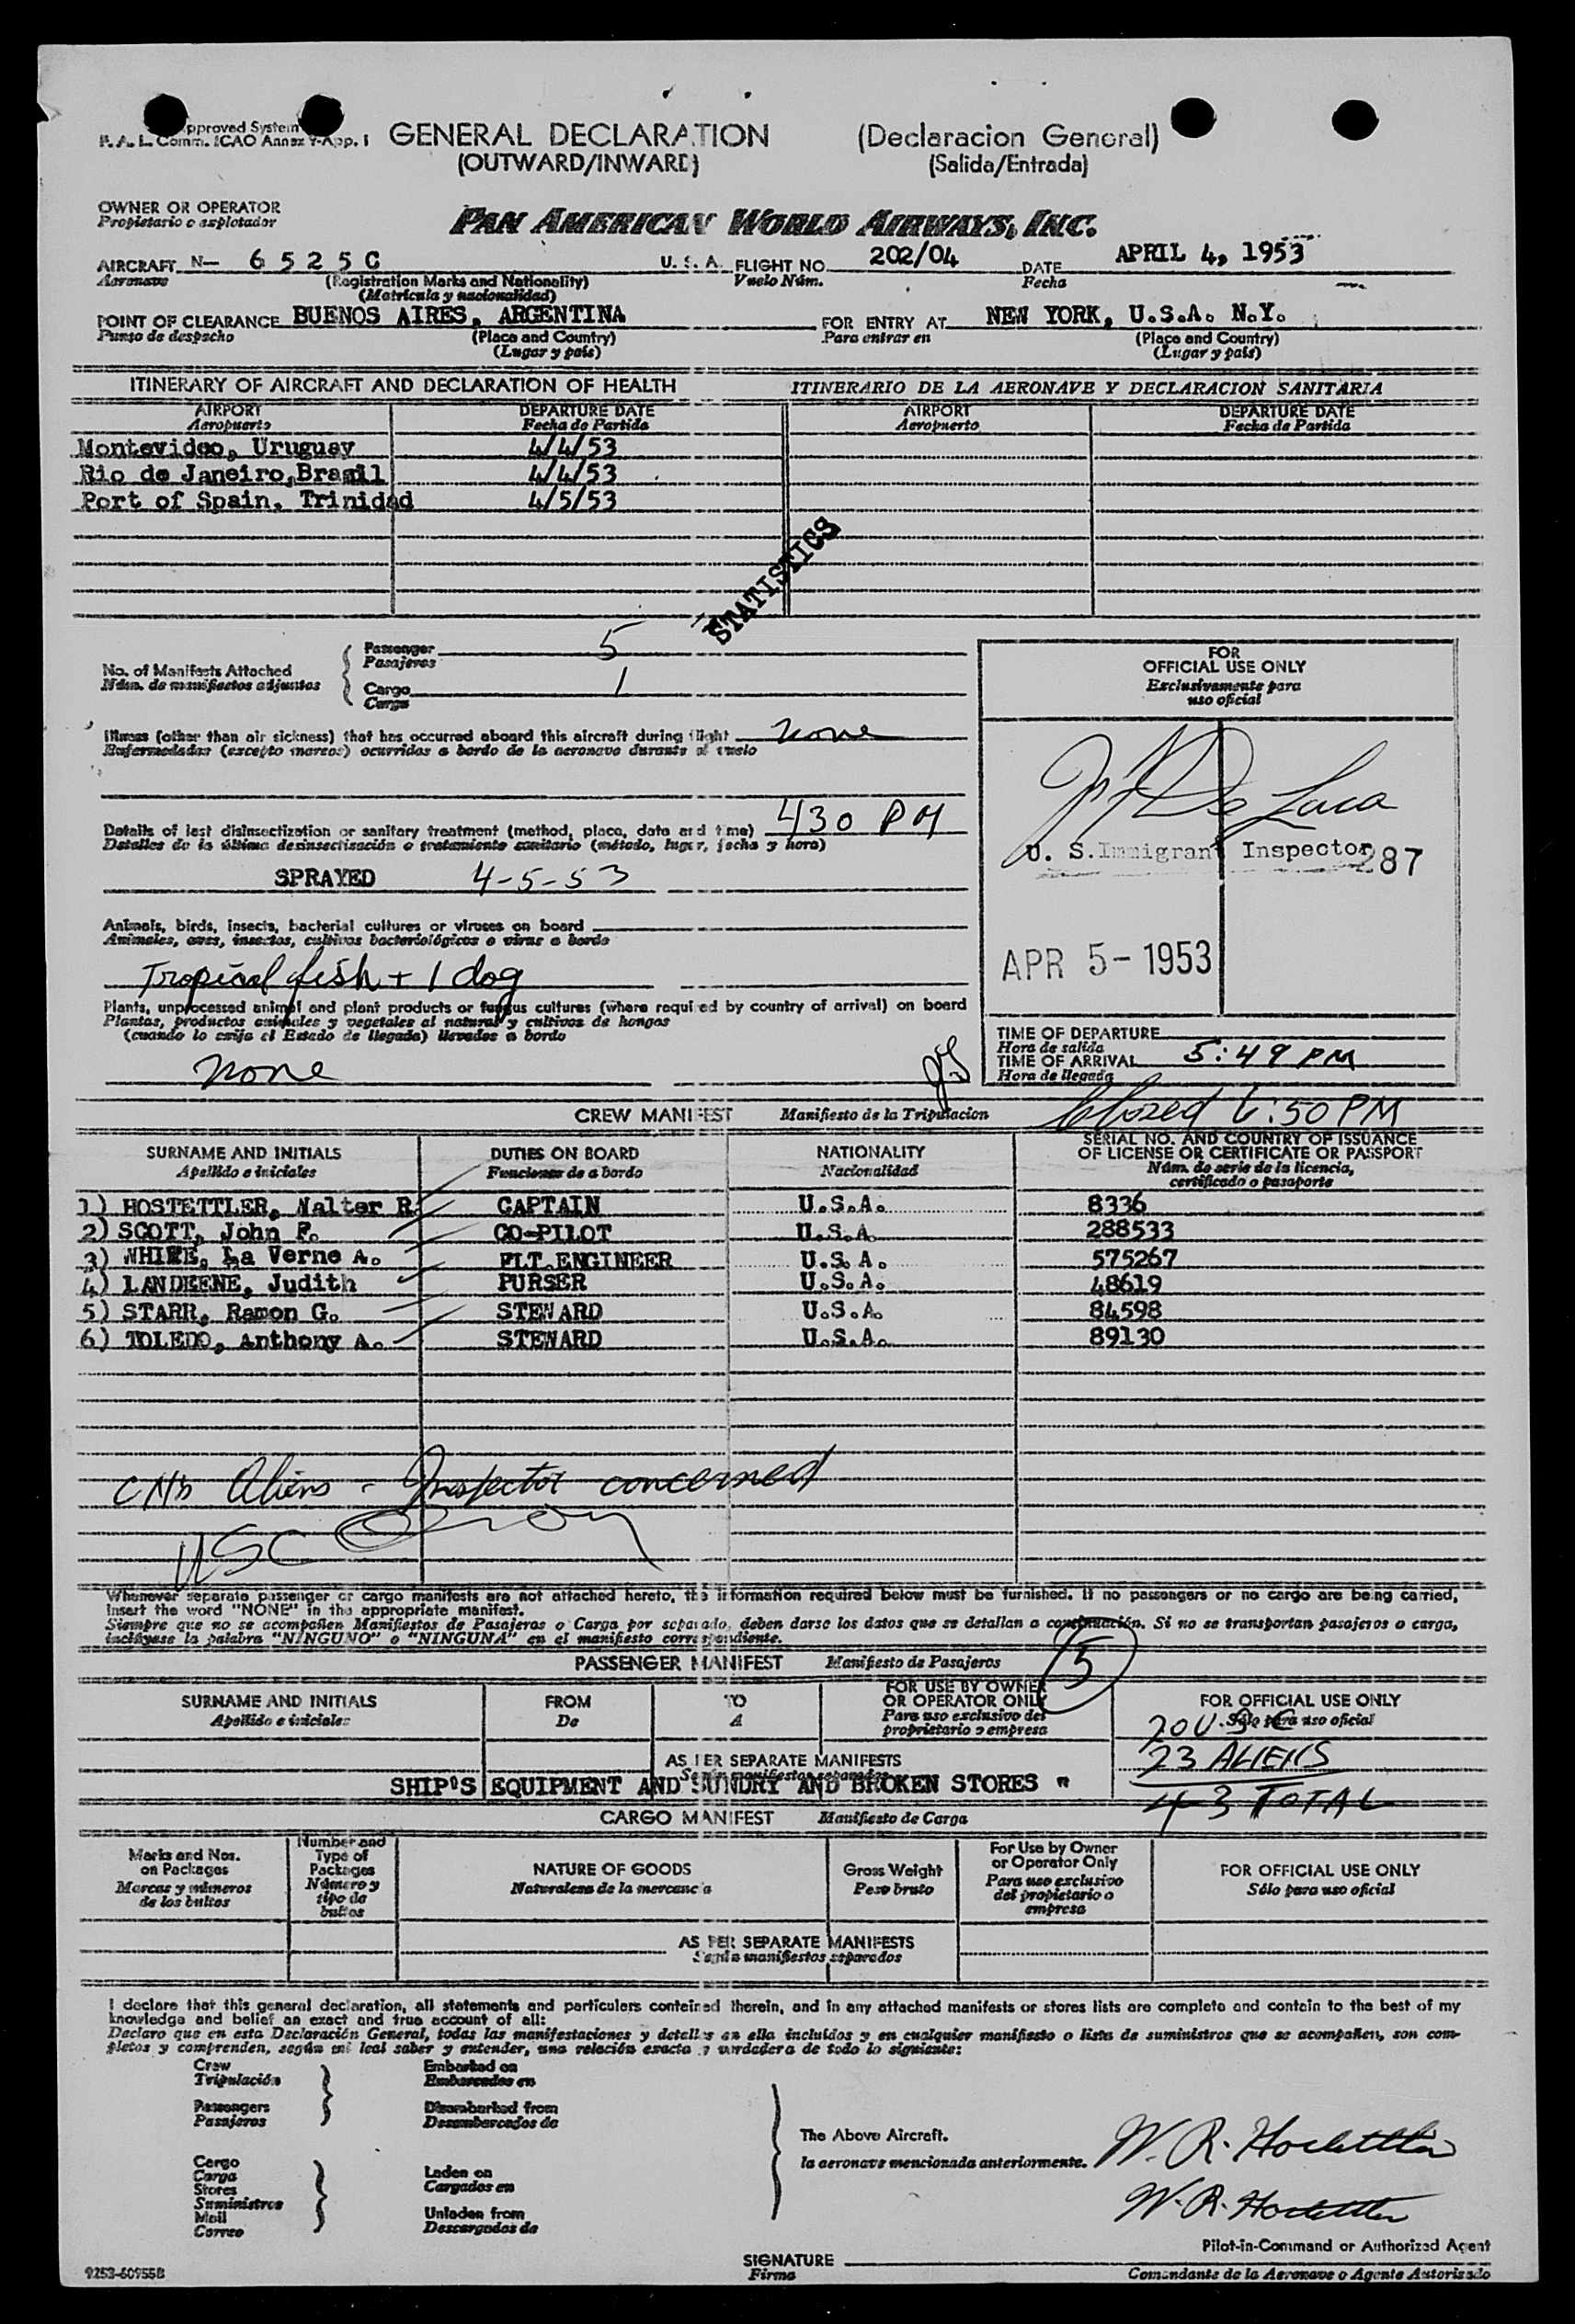 Approved System
F. A. L. Comm. ICAO Annex 9-App. I
GENERAL DECLARATION (Declaracion General)
(OUTWARD/INWARD) (Salida/Entrada)
OWNER OR OPERATOR
Propietario o explotador
PAN AMERICAN WORLD AIRWAYS, INC.
AIRCRAFT N- 6525C U. S. A. FLIGHT NO. 202/04 DATE APRIL 4, 1953
Aeronave (Registration Marks and Nationality) Vuelo Núm. Fecha
(Matricula y nacionalidad)
POINT OF CLEARANCE BUENOS AIRES, ARGENTINA FOR ENTRY AT NEW YORK, U.S.A. N.Y.
Punto de despacho (Place and Country) Para entrar en (Place and Country)
(Lugar y país) (Lugar y país)
ITINERARY OF AIRCRAFT AND DECLARATION OF HEALTH ITINERARIO DE LA AERONAVE Y DECLARACION SANITARIA
AIRPORT DEPARTURE DATE AIRPORT DEPARTURE DATE
Aeropuerto Fecha de Partida Aeropuerto Fecha de Partida
Montevideo, Uruguay 4/4/53
Rio de Janeiro,Brasil 4/4/53
Port of Spain, Trinidad 4/5/53
STATISTICS
No. of Manifests Attached
Núm. de manifiestos adjuntos
Passenger 5
Pasajeros
Cargo 1
Carga
FOR
OFFICIAL USE ONLY
Exclusivamente para
uso oficial
Illness (other than air sickness) that has occurred aboard this aircraft during flight none
Enfermedades (excepto mareos) ocurridas a bordo de la aeronave durante el vuelo
Details of last disinsectization or sanitary treatment (method, place, date and time) 430 PM
Detalles de la última desinsectización o tratamiento sanitario (método, lugar, fecha y hora)
SPRAYED 4-5-53
U. S. Immigrant Inspector 287
Animals, birds, insects, bacterial cultures or viruses on board
Animales, aves, insectos, cultivos bacteriológicos o virus a bordo
Tropical fish + 1 dog
APR 5- 1953
Plants, unprocessed animal and plant products or fungus cultures (where required by country of arrival) on board
Plantas, productos animales y vegetales al natural y cultivos de hongos
(cuando lo exija el Estado de llegada) llevados a bordo
none
TIME OF DEPARTURE
Hora de salida
TIME OF ARRIVAL 5:49 PM
Hora de llegada
Closed 6:50 PM
CREW MANIFEST Manifiesto de la Tripulacion
SURNAME AND INITIALS DUTIES ON BOARD NATIONALITY SERIAL NO. AND COUNTRY OF ISSUANCE
OF LICENSE OR CERTIFICATE OR PASSPORT
Apellido e iniciales Funciones de a bordo Nacionalidad Núm. de serie de la licencia,
certificado o pasaporte
1) HOSTETTLER, Walter R. CAPTAIN U.S.A. 8336
2) SCOTT, John F. CO-PILOT U.S.A. 288533
3) WHITE, La Verne A. FLT.ENGINEER U.S.A. 575267
4) LANDKENE, Judith PURSER U.S.A. 48619
5) STARR, Ramon G. STEWARD U.S.A. 84598
6) TOLEDO, Anthony A. STEWARD U.S.A. 89130
Aliens - Inspector concerned
USC
Whenever separate passenger or cargo manifests are not attached hereto, the information required below must be furnished. If no passengers or no cargo are being carried,
insert the word "NONE" in the appropriate manifest.
Siempre que no se acompañen Manifiestos de Pasajeros o Carga por separado, deben darse los datos que se detallan a continuación. Si no se transportan pasajeros o carga,
inclúyase la palabra "NINGUNO" o "NINGUNA" en el manifiesto correspondiente.
PASSENGER MANIFEST Manifiesto de Pasajeros 5
SURNAME AND INITIALS FROM TO FOR USE BY OWNER
OR OPERATOR ONLY FOR OFFICIAL USE ONLY
Apellido e iniciales De A Para uso exclusivo del
propietario o empresa Sólo para uso oficial
20 U.S.C
23 ALIENS
43 TOTAL
AS PER SEPARATE MANIFESTS
Según manifiestos separados
SHIP'S EQUIPMENT AND SUNDRY AND BROKEN STORES "
CARGO MANIFEST Manifiesto de Carga
Marks and Nos.
on Packages
Marcas y números
de los bultos
Number and
Type of
Packages
Número y
tipo de
bultos
NATURE OF GOODS
Naturaleza de la mercancia
Gross Weight
Peso bruto
For Use by Owner
or Operator Only
Para uso exclusivo
del propietario o
empresa
FOR OFFICIAL USE ONLY
Sólo para uso oficial
AS PER SEPARATE MANIFESTS
Según manifiestos separados
I declare that this general declaration, all statements and particulars contained therein, and in any attached manifests or stores lists are complete and contain to the best of my
knowledge and belief an exact and true account of all:
Declaro que en esta Declaración General, todas las manifestaciones y detalles en ella incluidos y en cualquier manifiesto o lista de suministros que se acompañen, son com-
pletos y comprenden, según mi leal saber y entender, una relación exacta y verdadera de todo lo siguiente:
Crew Embarked on
Tripulación Embarcados en
Passengers Disembarked from
Pasajeros Desembarcados de
The Above Aircraft.
la aeronave mencionada anteriormente.
W. R. Hostettler
Cargo
Carga Laden on
Stores Cargados en
Suministros
Mail Unladen from
Correo Descargados de
W. R. Hostettler
Pilot-in-Command or Authorized Agent
SIGNATURE
Firma Comandante de la Aeronave o Agente Autorizado
9253-60955B